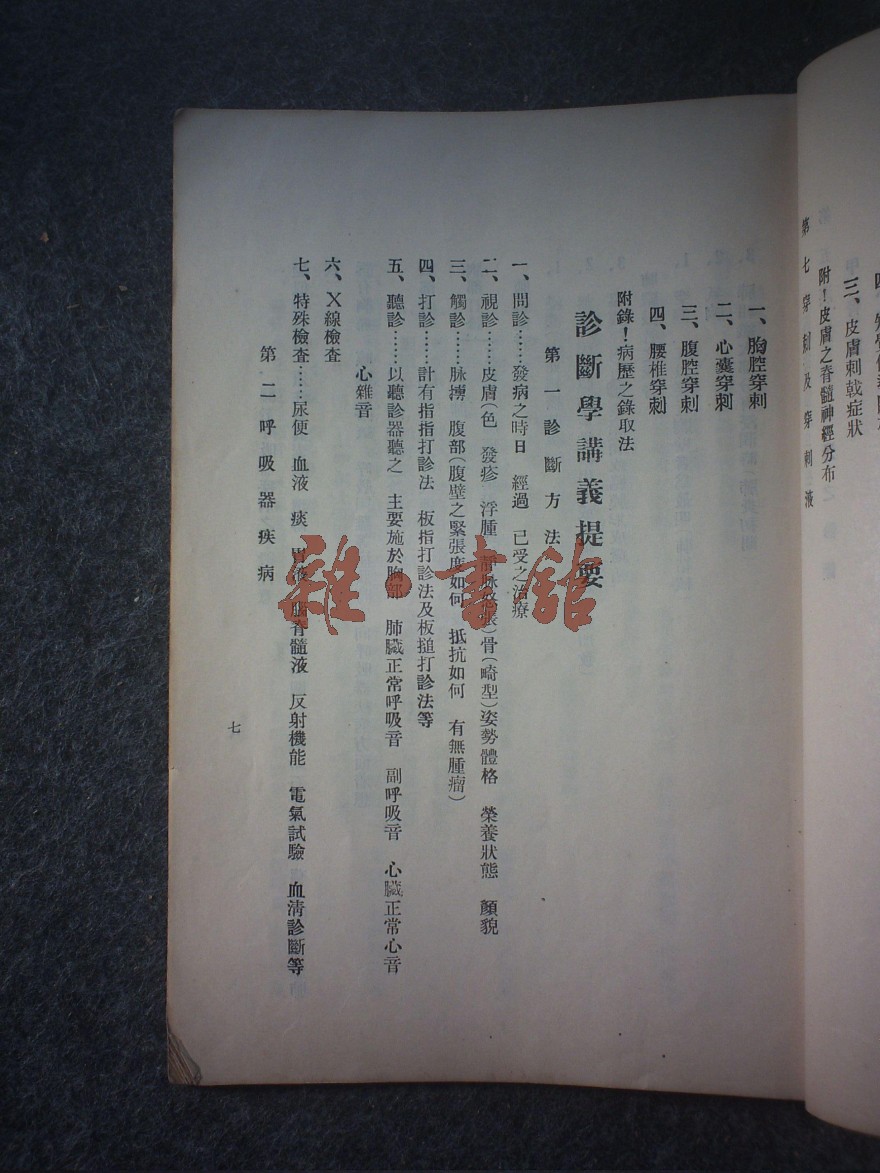 三、皮膚刺戟症狀
附！皮膚之脊髓神經分布
第七穿刺及穿刺液
一、胸腔穿刺
二、心囊穿刺
三、腹腔穿刺
四、腰椎穿刺
附錄！病歷之錄取法
診斷學講義提要
第一診斷方法
一、問診……發病之時日 經過 已受之治療
二、視診……皮膚(色 發疹 浮腫 靜脉怒張)骨(畸型)姿勢體格 榮養狀態 顏貌
三、觸診……脉搏 腹部(腹壁之緊張度如何 抵抗如何 有無腫瘤)
四、打診……計有指指打診法 板指打診法及板搥打診法等
五、聽診……以聽診器聽之 主要施於胸部 肺臟正常呼吸音 副呼吸音 心臟正常心音
心雜音
六、X線檢查
七、特殊檢查……尿便 血液 痰 胃液 腦脊髓液 反射機能 電氣試驗 血清診斷等
第二呼吸器疾病
七
雜·書舘